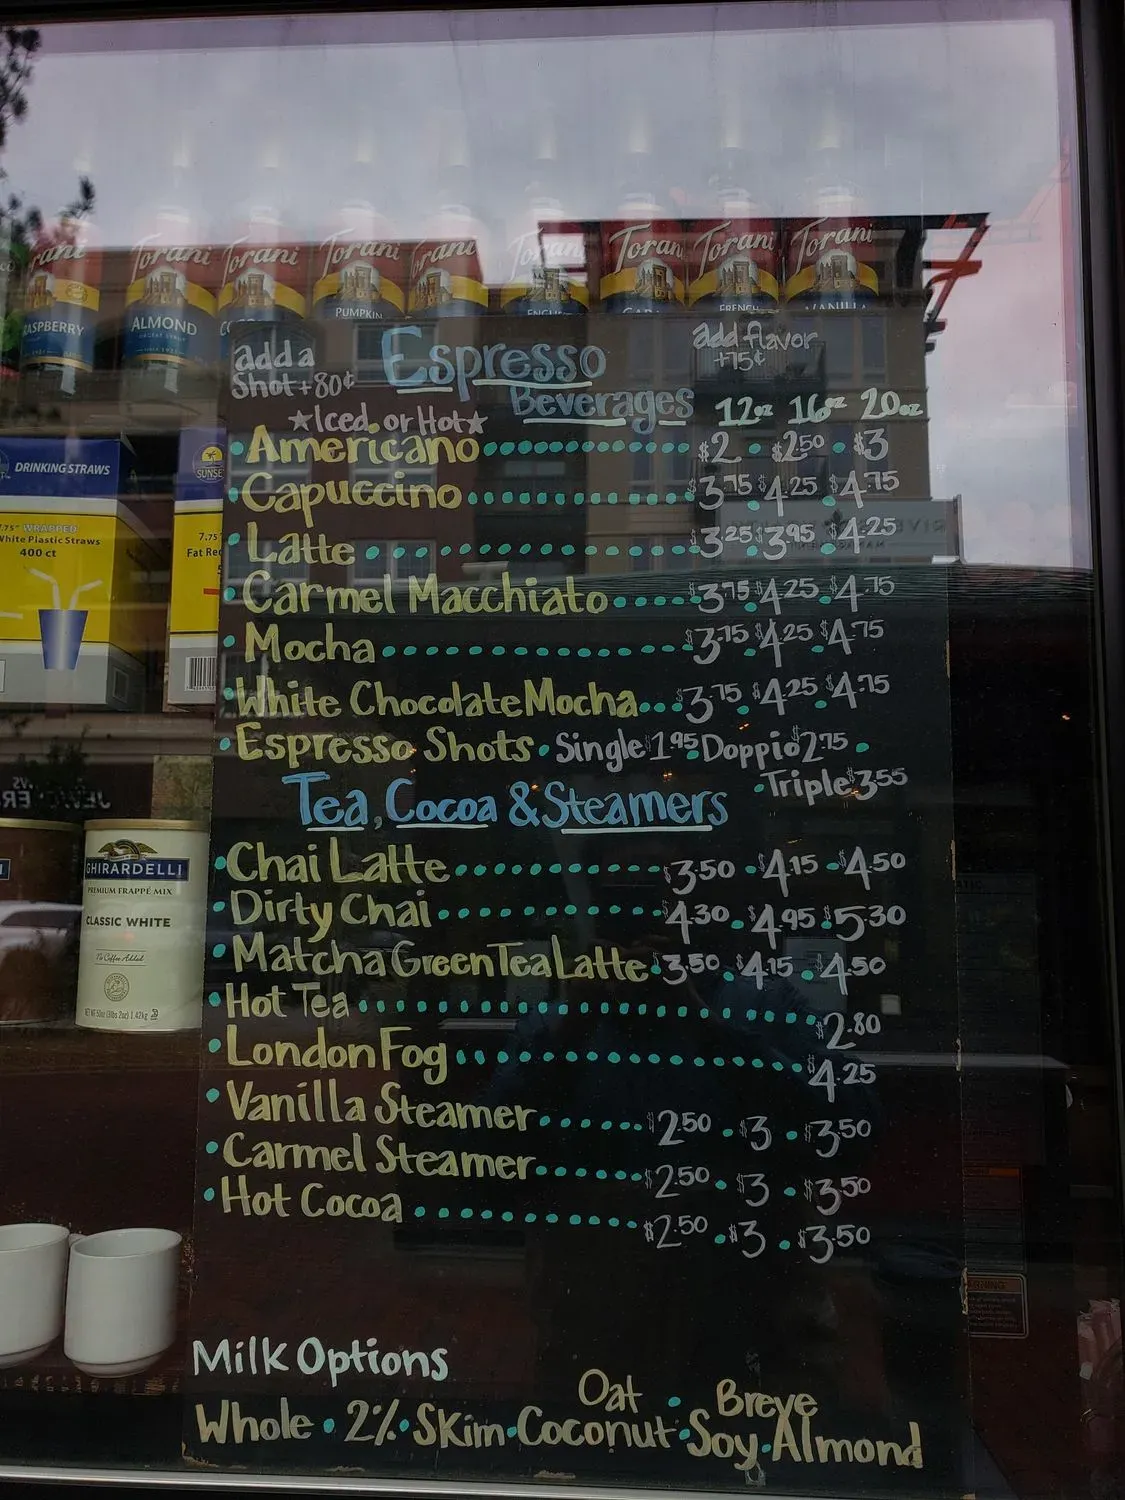 Torani Torani Torani Torani Torani Torani Torani Torani
RASPBERRY ALMOND PUMPKIN FRENCH VANILLA
add a
Shot +80¢
Espresso
Beverages
add flavor
+75¢
★Iced or Hot★
12oz 16oz 20oz
Americano $2 $2.50 $3
Capuccino $3.75 $4.25 $4.75
Latte $3.25 $3.95 $4.25
Carmel Macchiato $3.75 $4.25 $4.75
Mocha $3.75 $4.25 $4.75
White Chocolate Mocha $3.75 $4.25 $4.75
Espresso Shots Single $1.95 Doppio $2.75
Triple $3.55
Tea, Cocoa & Steamers
Chai Latte $3.50 $4.15 $4.50
Dirty Chai $4.30 $4.95 $5.30
Matcha Green Tea Latte $3.50 $4.15 $4.50
Hot Tea $2.80
London Fog $4.25
Vanilla Steamer $2.50 $3 $3.50
Carmel Steamer $2.50 $3 $3.50
Hot Cocoa $2.50 $3 $3.50
Milk Options
Oat • Breve
Whole • 2% • Skim • Coconut • Soy • Almond
DRINKING STRAWS
7.75" WRAPPED
White Plastic Straws
400 ct
SUNSE
7.75
Fat Red
GHIRARDELLI
PREMIUM FRAPPÉ MIX
CLASSIC WHITE
No Coffee Added
NET WT 50oz (3lbs 2oz) 1.42kg